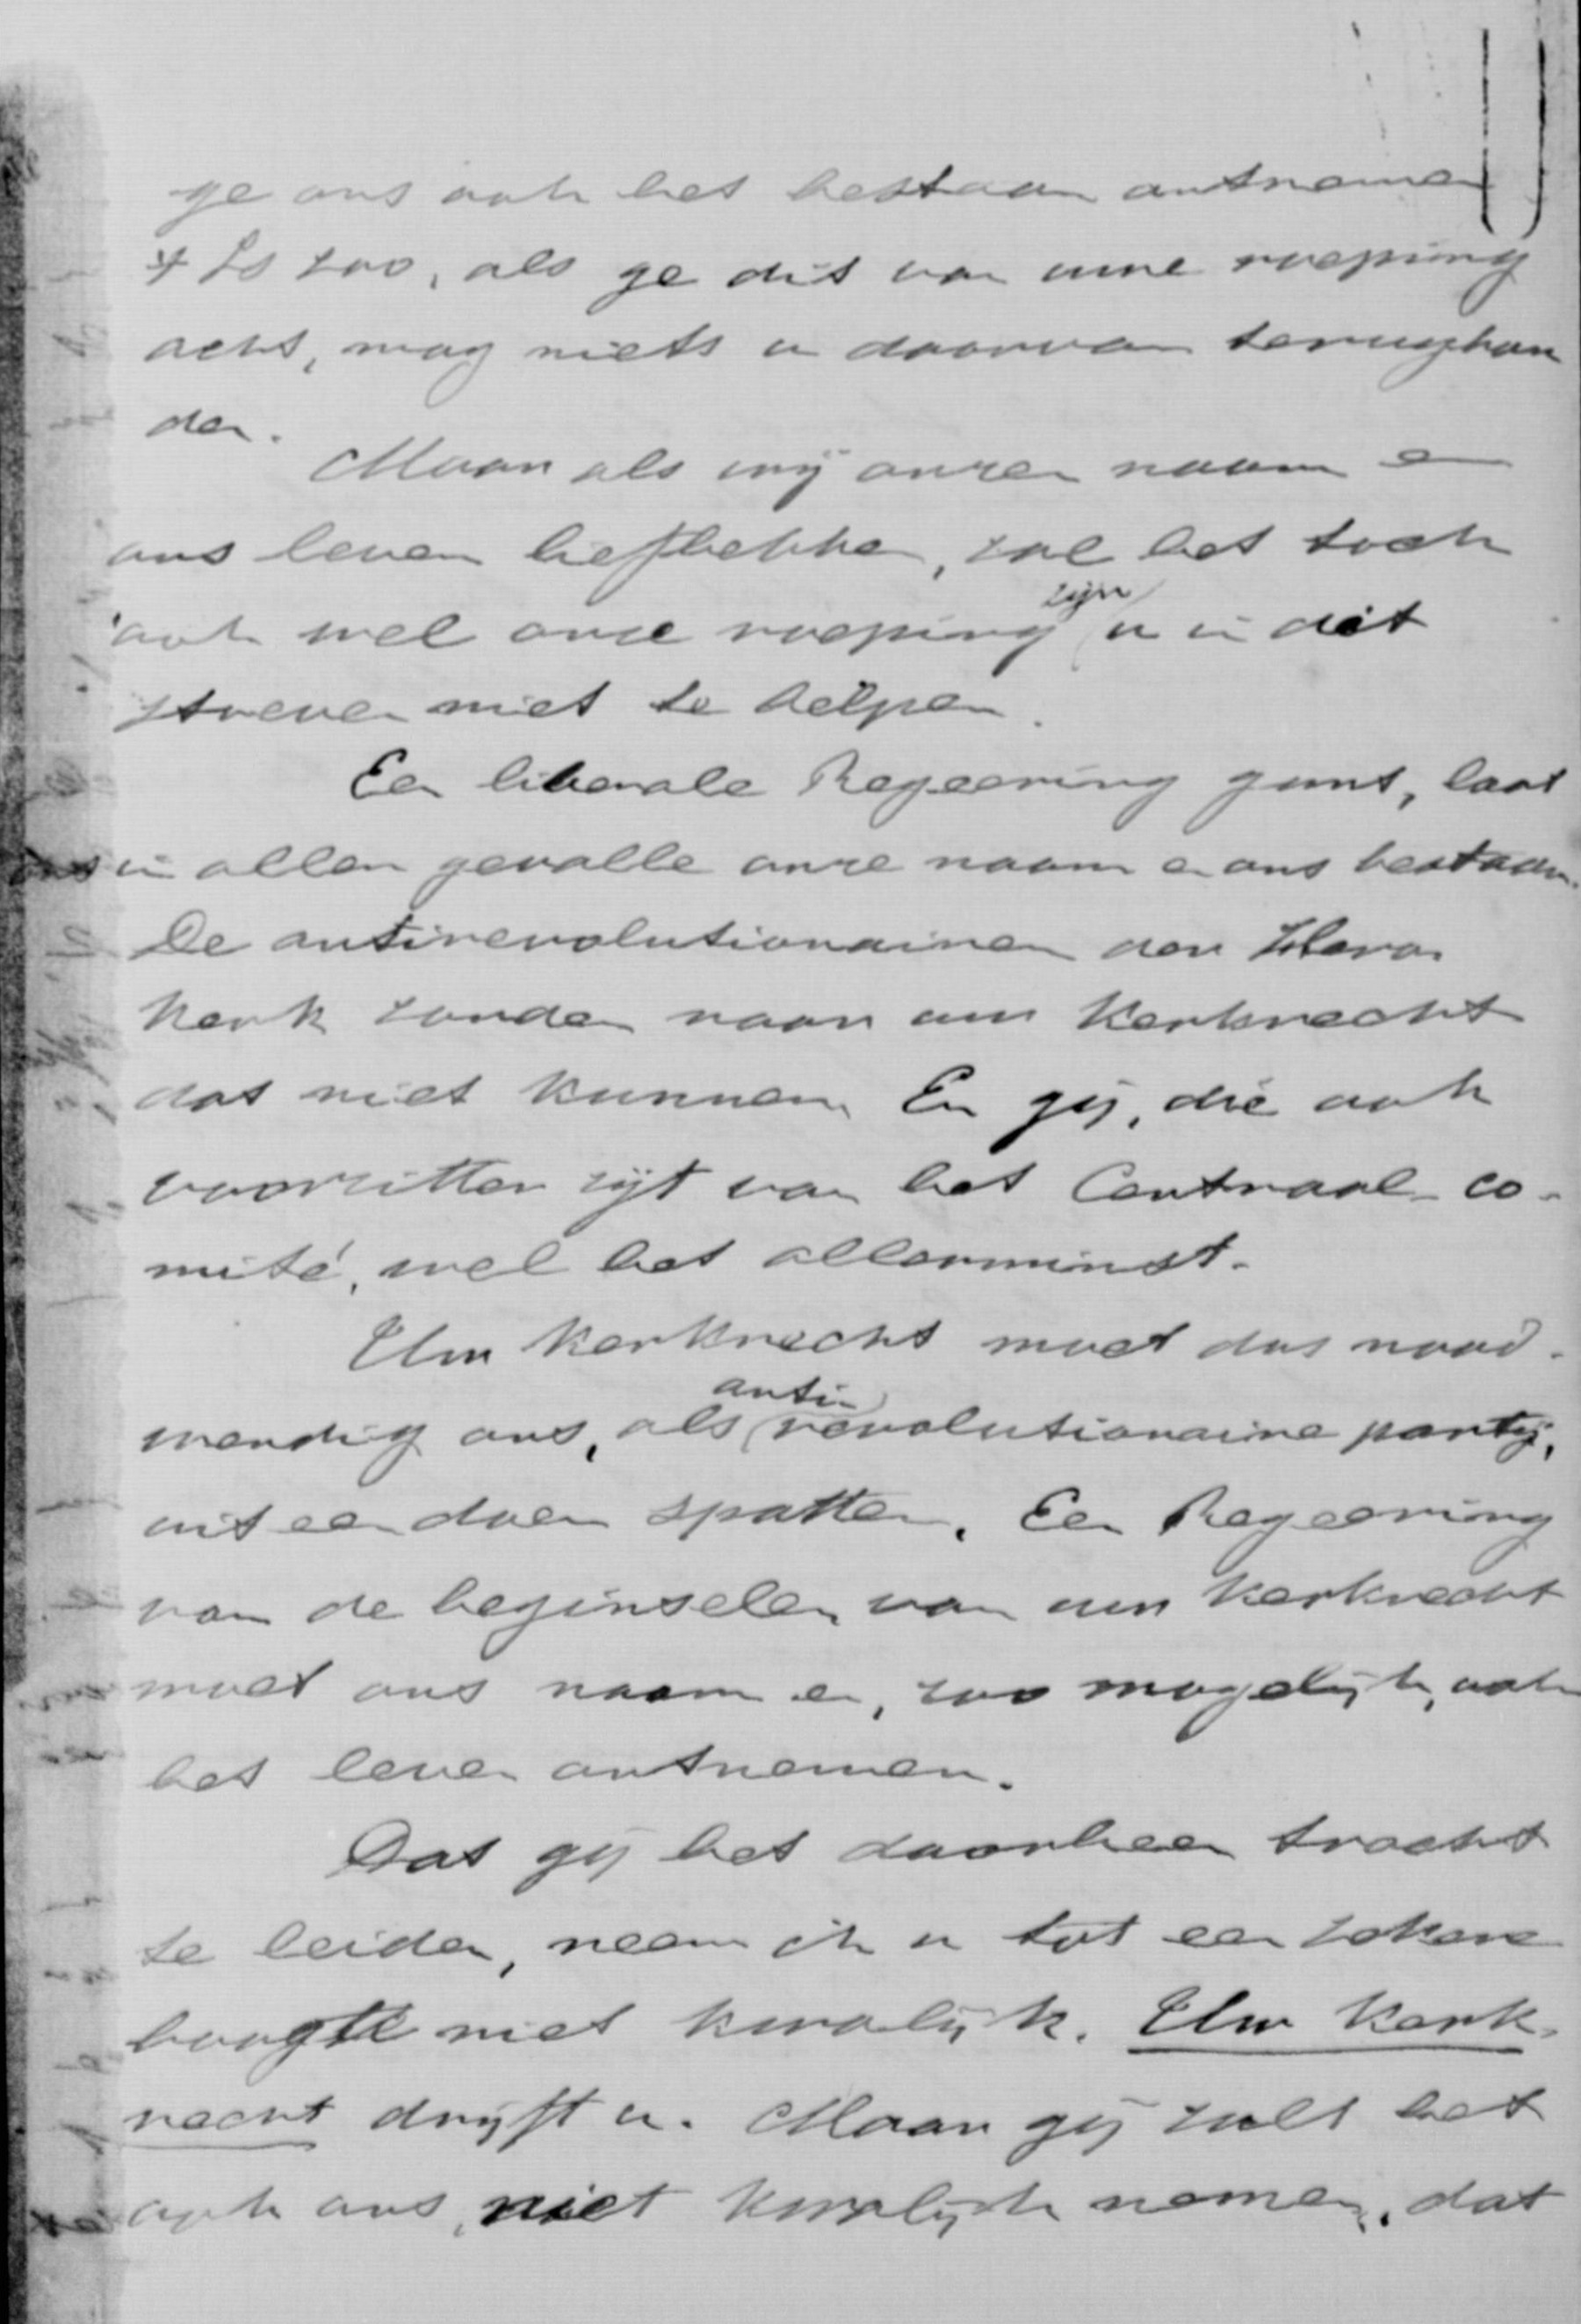 ge ons ook het bestaan ontnemen
't Is zoo, als ge dit van uwe roeping
acht, mag niets u daarvan terughou
den.
Maar als wij onzen naam en
ons leven liefhebben, zal het toch
ook wel onze roeping zijn u in dit
streven niet te helpen.
Een liberale Regeering gunt, laat
ons in allen gevalle onze naam en ons bestaan.
De antirevolutionairen der Herv.
kerk zouden naar uw Kerkrecht
dat niet kunnen. En gij, die ook
voorzitter zijt van het Centraal-co-
mité, wel het allerminst.
Uw Kerkrecht moet dus nood-
wendig ons, als antirevolutionaire partij,
uit een doen spatten. Een Regeering
van de beginselen van uw Kerkrecht
moet ons naam en, zoo mogelijk, ook
het leven ontnemen.
Dat gij het daarheen tracht
te leiden, neem ik u tot een zekere
hoogte niet kwalijk. Uw Kerk-
recht drijft u. Maar gij zult het
ook ons niet kwalijk nemen, dat